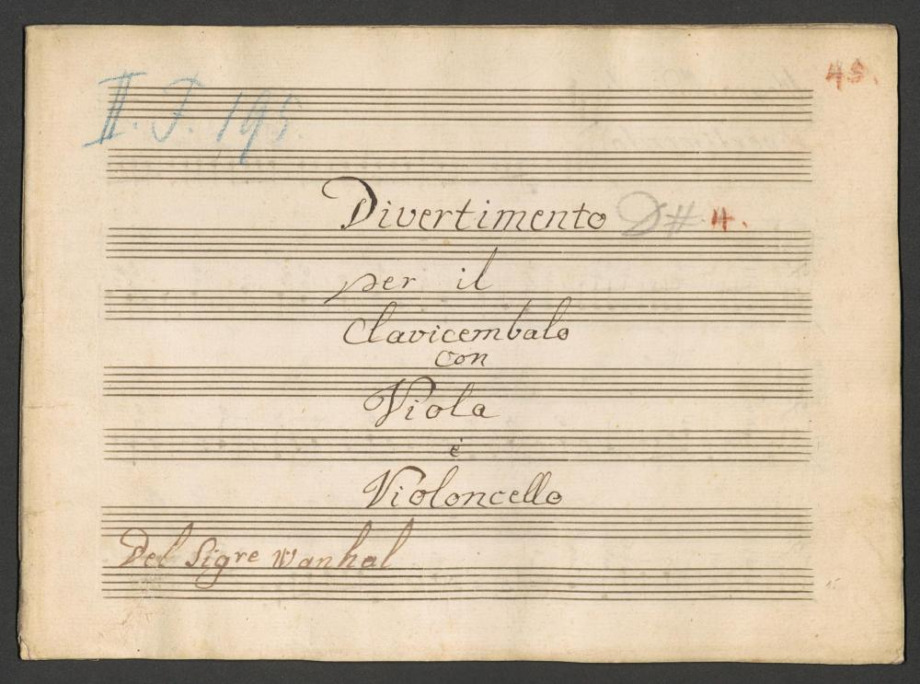 45.
II. J. 195
Divertimento D# 4.
per il
Clavicembalo
con
Viola
è
Violoncello
Del Sigre Wanhal